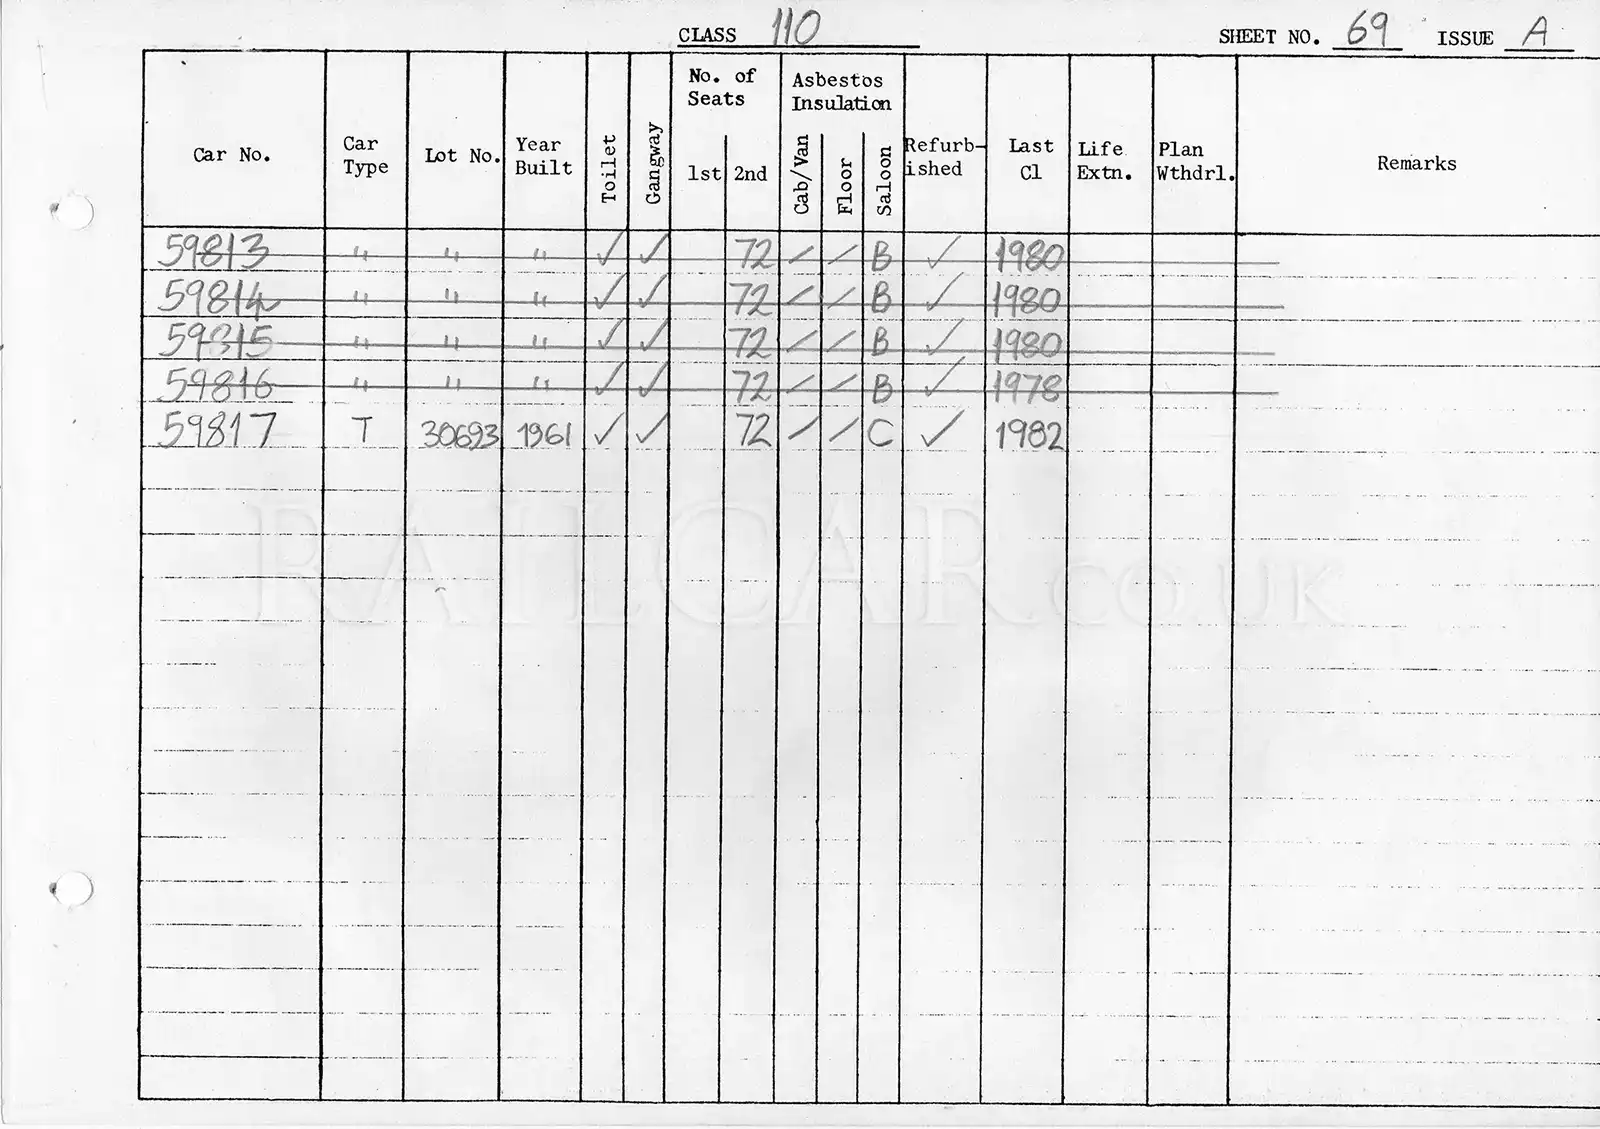 CLASS 110 SHEET NO. 69 ISSUE A
No. of Seats Asbestos Insulation
Car No. Car Type Lot No. Year Built Toilet Gangway 1st 2nd Cab/Van Floor Saloon Refurb-ished Last Cl Life Extn. Plan Wthdrl. Remarks
59813 " " " ✓ ✓ 72 / / B ✓ 1980
59814 " " " ✓ ✓ 72 / / B ✓ 1980
59815 " " " ✓ ✓ 72 / / B ✓ 1980
59816 " " " ✓ ✓ 72 / / B ✓ 1978
59817 T 30693 1961 ✓ ✓ 72 / / C ✓ 1982
RAILCAR.CO.UK